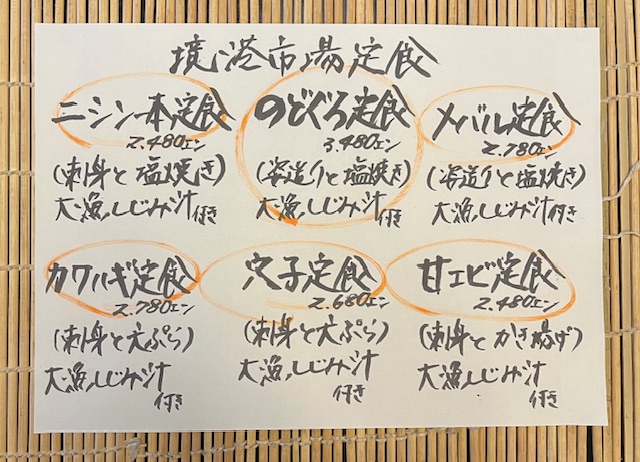 境港市場定食
ニシン一本定食
2.480エン
(刺身と塩焼き)
大漁しじみ汁付き
のどぐろ定食
3.480エン
(姿造りと塩焼き)
大漁しじみ汁付き
メバル定食
2.780エン
(姿造りと塩焼き)
大漁しじみ汁付き
カワハギ定食
2.780エン
(刺身と天ぷら)
大漁しじみ汁
付き
穴子定食
2.680エン
(刺身と天ぷら)
大漁しじみ汁
付き
甘エビ定食
2.480エン
(刺身とかき揚げ)
大漁しじみ汁
付き